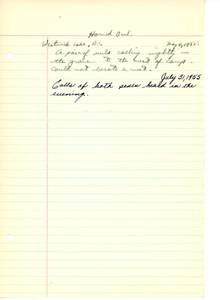 Horned Owl
Lake, B.C. May 9, 1955:
A pair of owls calling nightly —
the grove to the west of camp.
Could not locate a nest.
July 31, 1955
Calls of both sexes heard in the
evening.